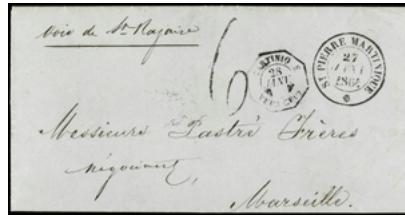 Voie de St. Nazaire
6
MARTINIQUE
28
JANV
ST PIERRE MARTINIQUE
27
JANV
1864
Messieurs Pastré Frères
négociant,
Marseille.